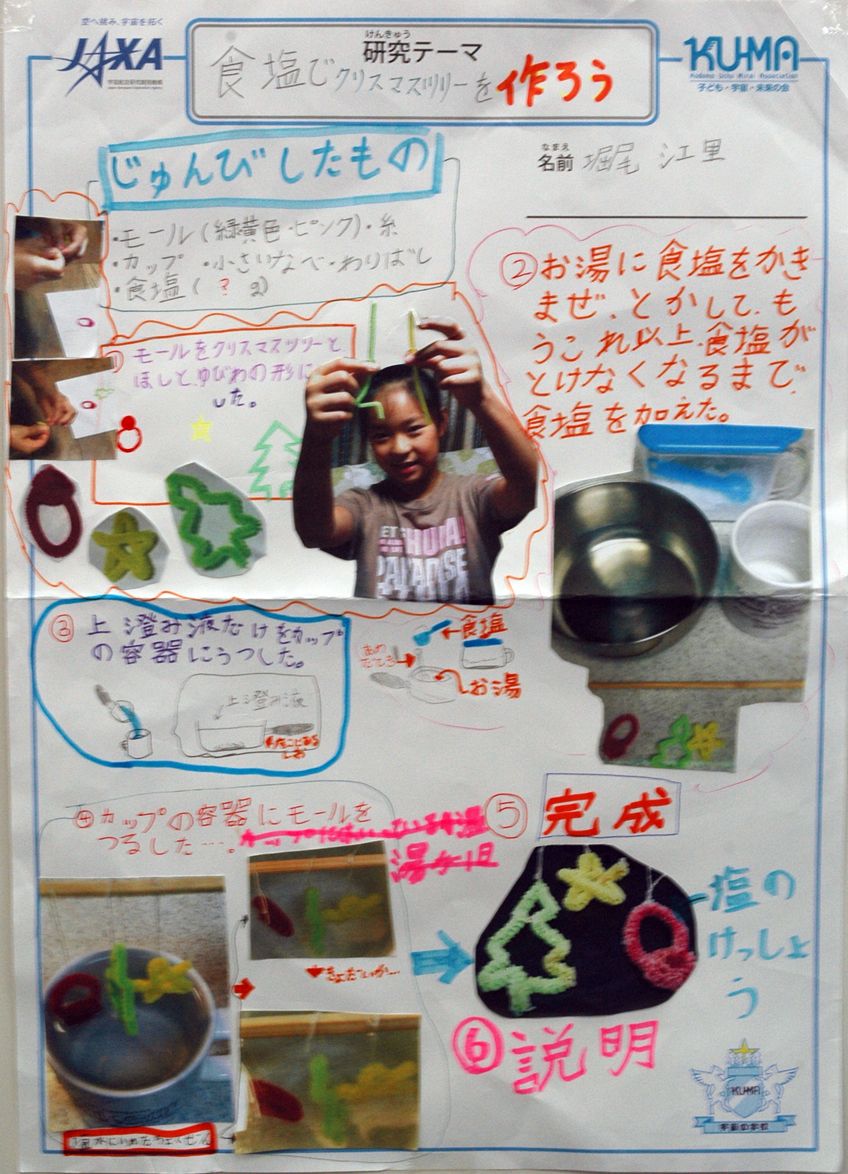 空へ挑み、宇宙を拓く
JAXA
けんきゅう
研究テーマ
食塩でクリスマスツリーを作ろう
KU-MA
Kodomo Uchu Mirai Association
子ども・宇宙・未来の会
なまえ
名前 堀尾 江里
じゅんびしたもの
・モール(緑黄色・ピンク)・糸
・カップ ・小さいなべ・わりばし
・食塩( ? g)
① モールをクリスマスツリーと、
ほしと、ゆびわの形に
した。
②お湯に食塩をかき
まぜ、とかして、も
うこれ以上、食塩が
とけなくなるまで、
食塩を加えた。
食塩
お湯
③ 上澄み液だけをカップ
の容器にうつした。
上澄み液
④カップの容器にモールを
つるした…。
⑤ 完成
塩の
けっしょ
う
⑥説明
KU-MA
宇宙の学校